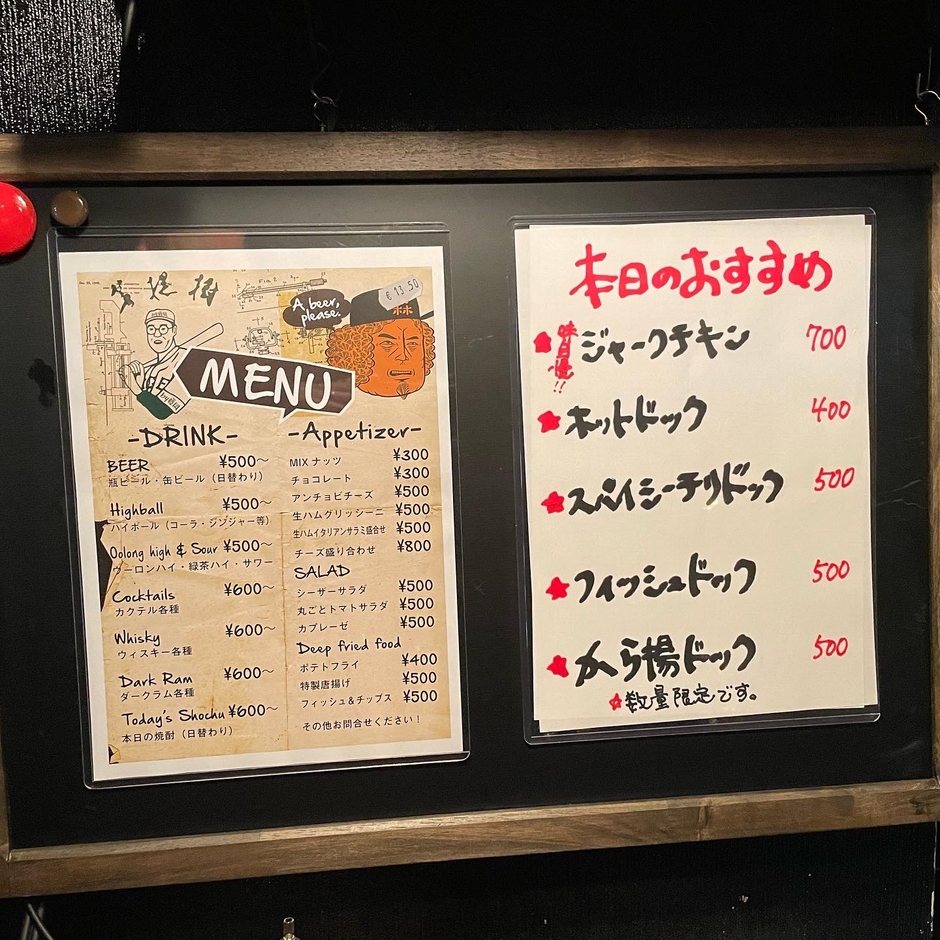 A beer,
please.
€ 13.50
MENU
-DRINK-
BEER ¥500〜
瓶ビール・缶ビール（日替わり）
Highball ¥500〜
ハイボール（コーラ・ジンジャー等）
Oolong high & Sour ¥500〜
ウーロンハイ・緑茶ハイ・サワー
Cocktails ¥600〜
カクテル各種
Whisky ¥600〜
ウィスキー各種
Dark Ram ¥600〜
ダークラム各種
Today's Shochu ¥600〜
本日の焼酎（日替わり）
-Appetizer-
MIX ナッツ ¥300
チョコレート ¥300
アンチョビチーズ ¥500
生ハムグリッシーニ ¥500
生ハムイタリアンサラミ盛合せ ¥500
チーズ盛り合わせ ¥800
SALAD
シーザーサラダ ¥500
丸ごとトマトサラダ ¥500
カプレーゼ ¥500
Deep fried food
ポテトフライ ¥400
特製唐揚げ ¥500
フィッシュ&チップス ¥500
その他お問合せください！
本日のおすすめ
ジャークチキン 700
ホットドック 400
スパイシーチリドック 500
フィッシュドック 500
から揚ドック 500
数量限定です。